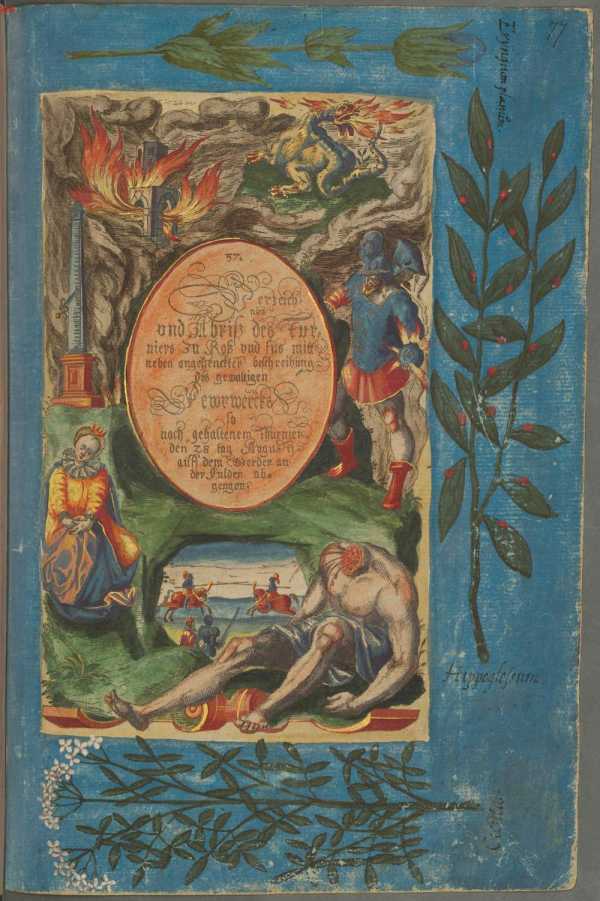 77
57.
Verzeichnus
und Abriß des Tur-
niers zu Roß und fus mitt
neben angehenckter beschreibung
des gewaltigen
Fewrwercks
so
nach gehaltenem Thurnier
den 28 tag Augusti
auff dem Werder an
der Fulden ab-
gangen.
Hippoglossum